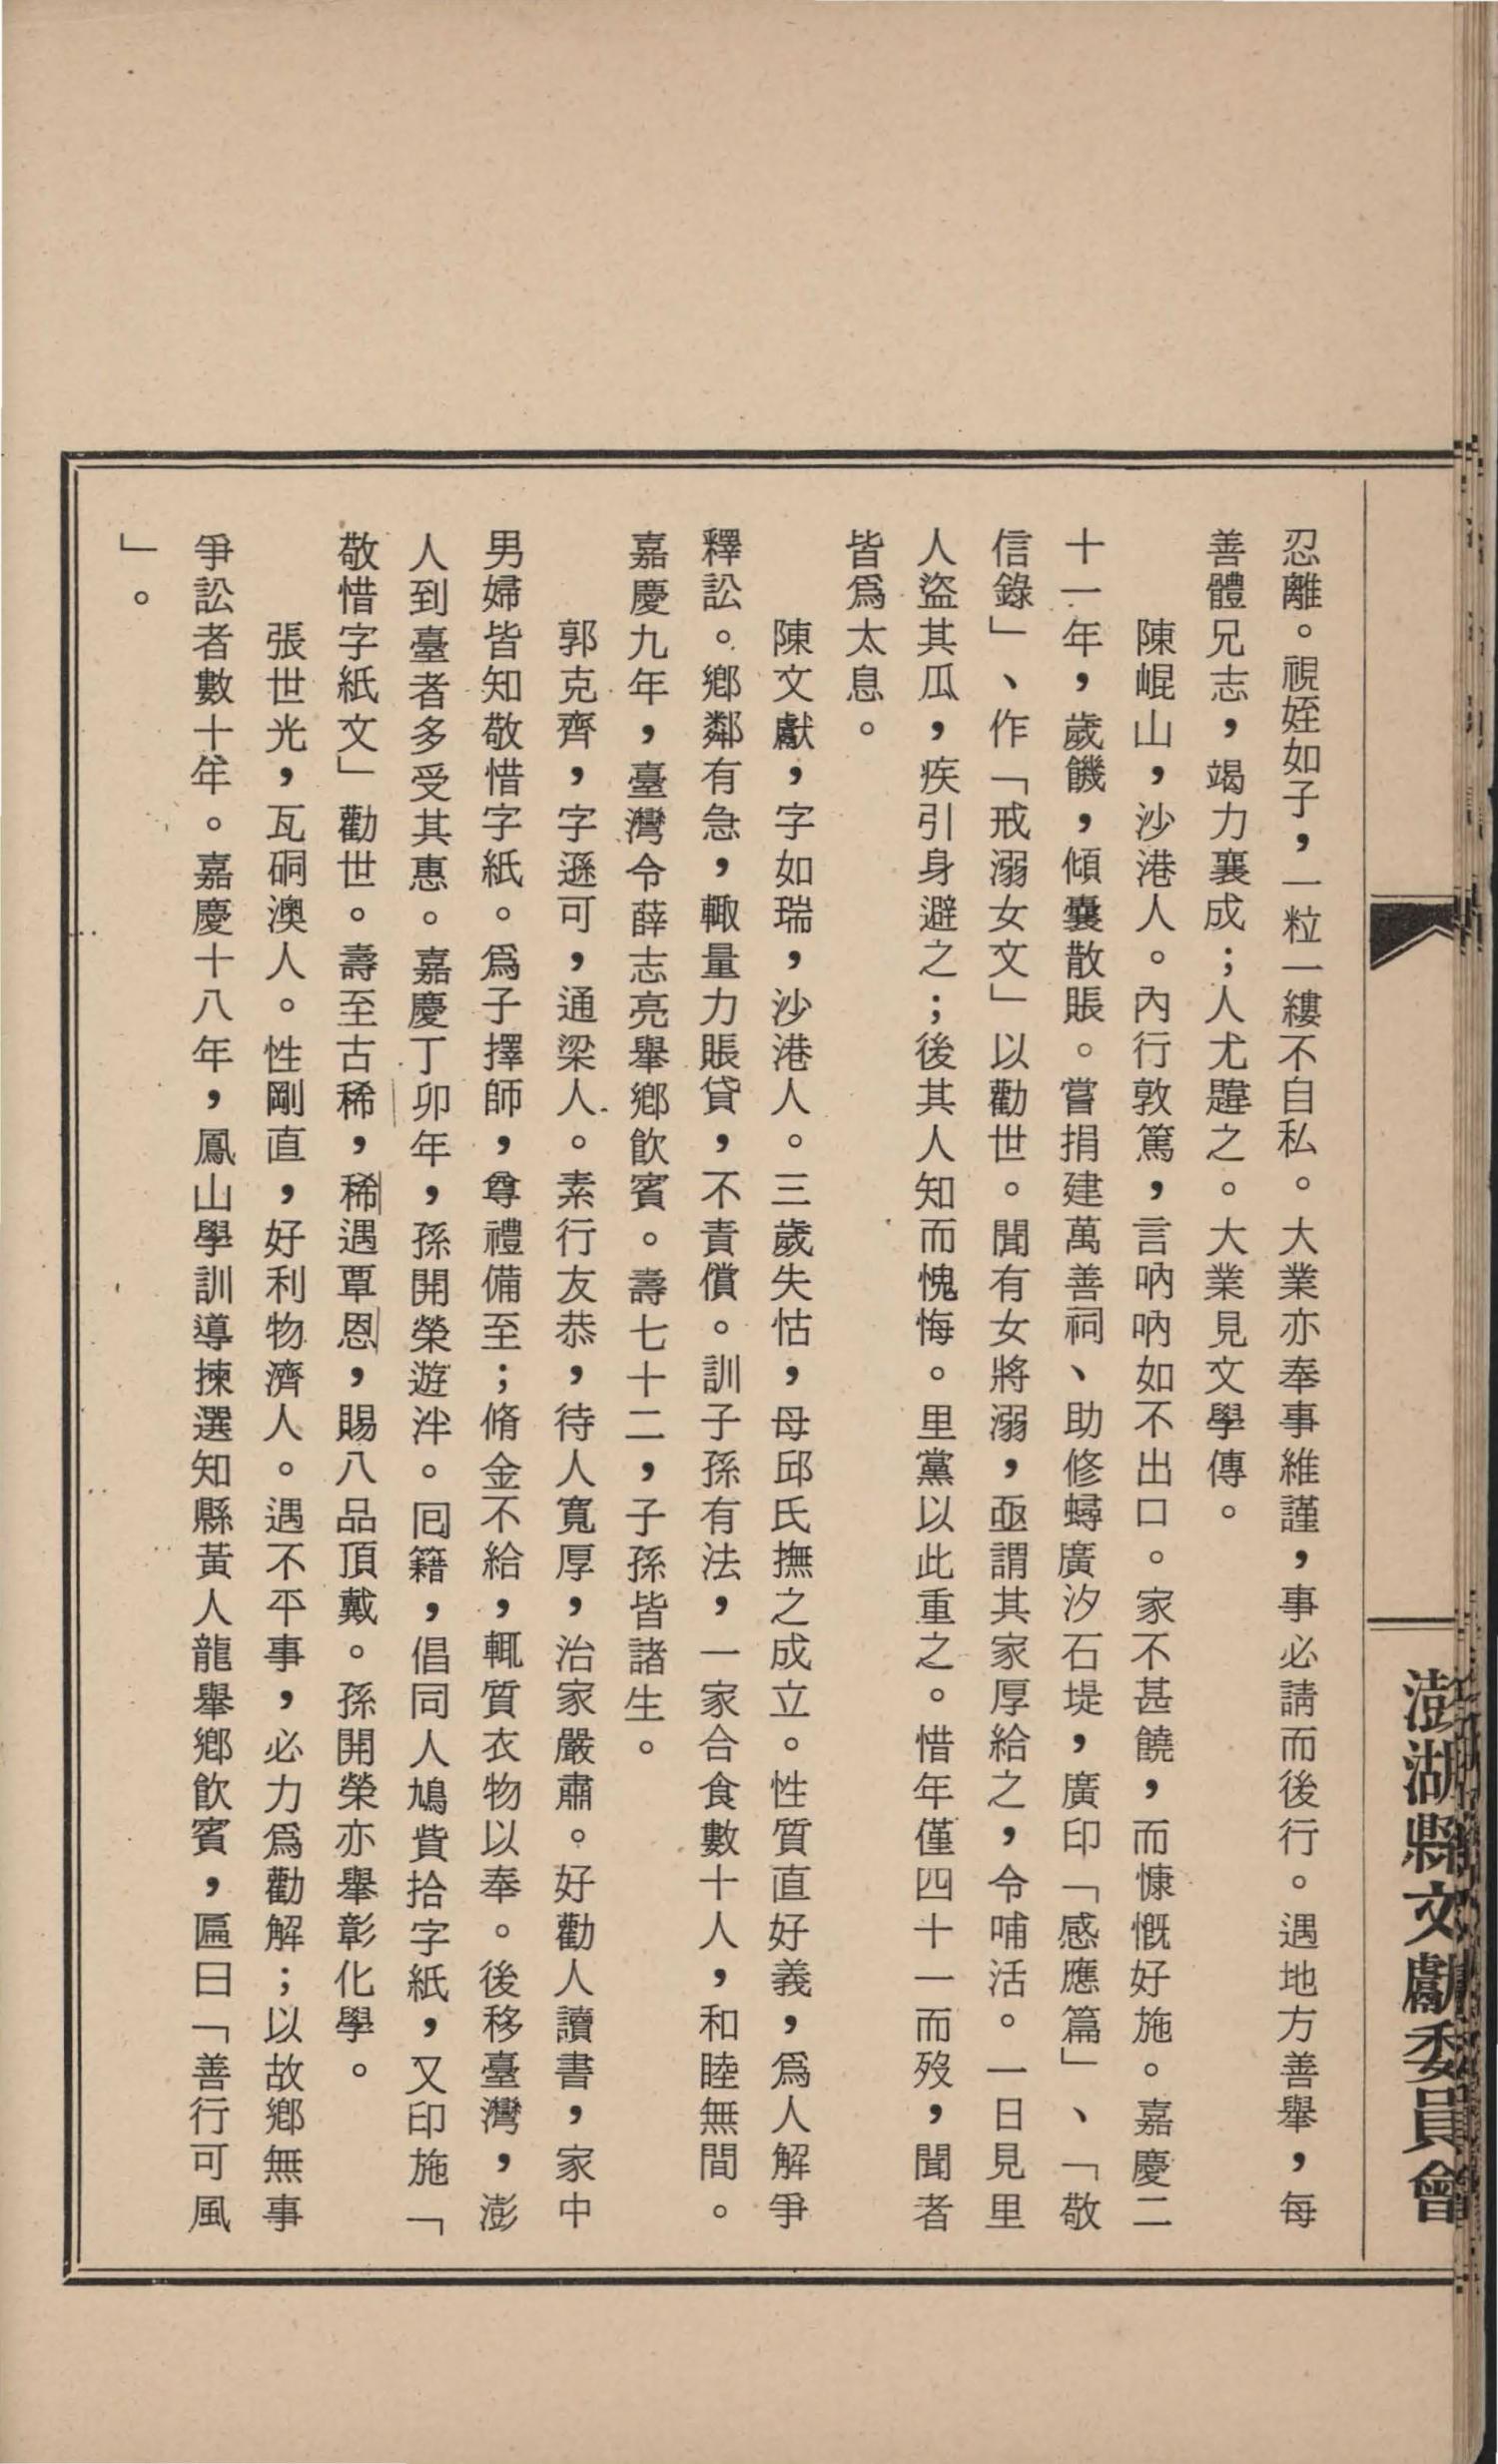 忍離。視姪如子，一粒一縷不自私。大業亦奉事維謹，事必請而後行。遇地方善舉，每
善體兄志，竭力襄成；人尤韙之。大業見文學傳。
陳崐山，沙港人。內行敦篤，言吶吶如不出口。家不甚饒，而慷慨好施。嘉慶二
十一年，歲饑，傾囊散賬。嘗捐建萬善祠、助修蟳廣汐石堤，廣印「感應篇」、「敬
信錄」、作「戒溺女文」以勸世。聞有女將溺，亟謂其家厚給之，令哺活。一日見里
人盜其瓜，疾引身避之；後其人知而愧悔。里黨以此重之。惜年僅四十一而歿，聞者
皆爲太息。
陳文獻，字如瑞，沙港人。三歲失怙，母邱氏撫之成立。性質直好義，爲人解爭
釋訟。鄉鄰有急，輙量力賬貸，不責償。訓子孫有法，一家合食數十人，和睦無間。
嘉慶九年，臺灣令薛志亮舉鄉飲賓。壽七十二，子孫皆諸生。
郭克齊，字遜可，通梁人。素行友恭，待人寬厚，治家嚴肅。好勸人讀書，家中
男婦皆知敬惜字紙。爲子擇師，尊禮備至；脩金不給，輒質衣物以奉。後移臺灣，澎
人到臺者多受其惠。嘉慶丁卯年，孫開榮遊泮。囘籍，倡同人鳩貲拾字紙，又印施「
敬惜字紙文」勸世。壽至古稀，稀遇覃恩，賜八品頂戴。孫開榮亦舉彰化學。
張世光，瓦硐澳人。性剛直，好利物濟人。遇不平事，必力爲勸解；以故鄉無事
爭訟者數十年。嘉慶十八年，鳳山學訓導揀選知縣黃人龍舉鄉飲賓，匾曰「善行可風
」。
澎湖縣文獻委員會